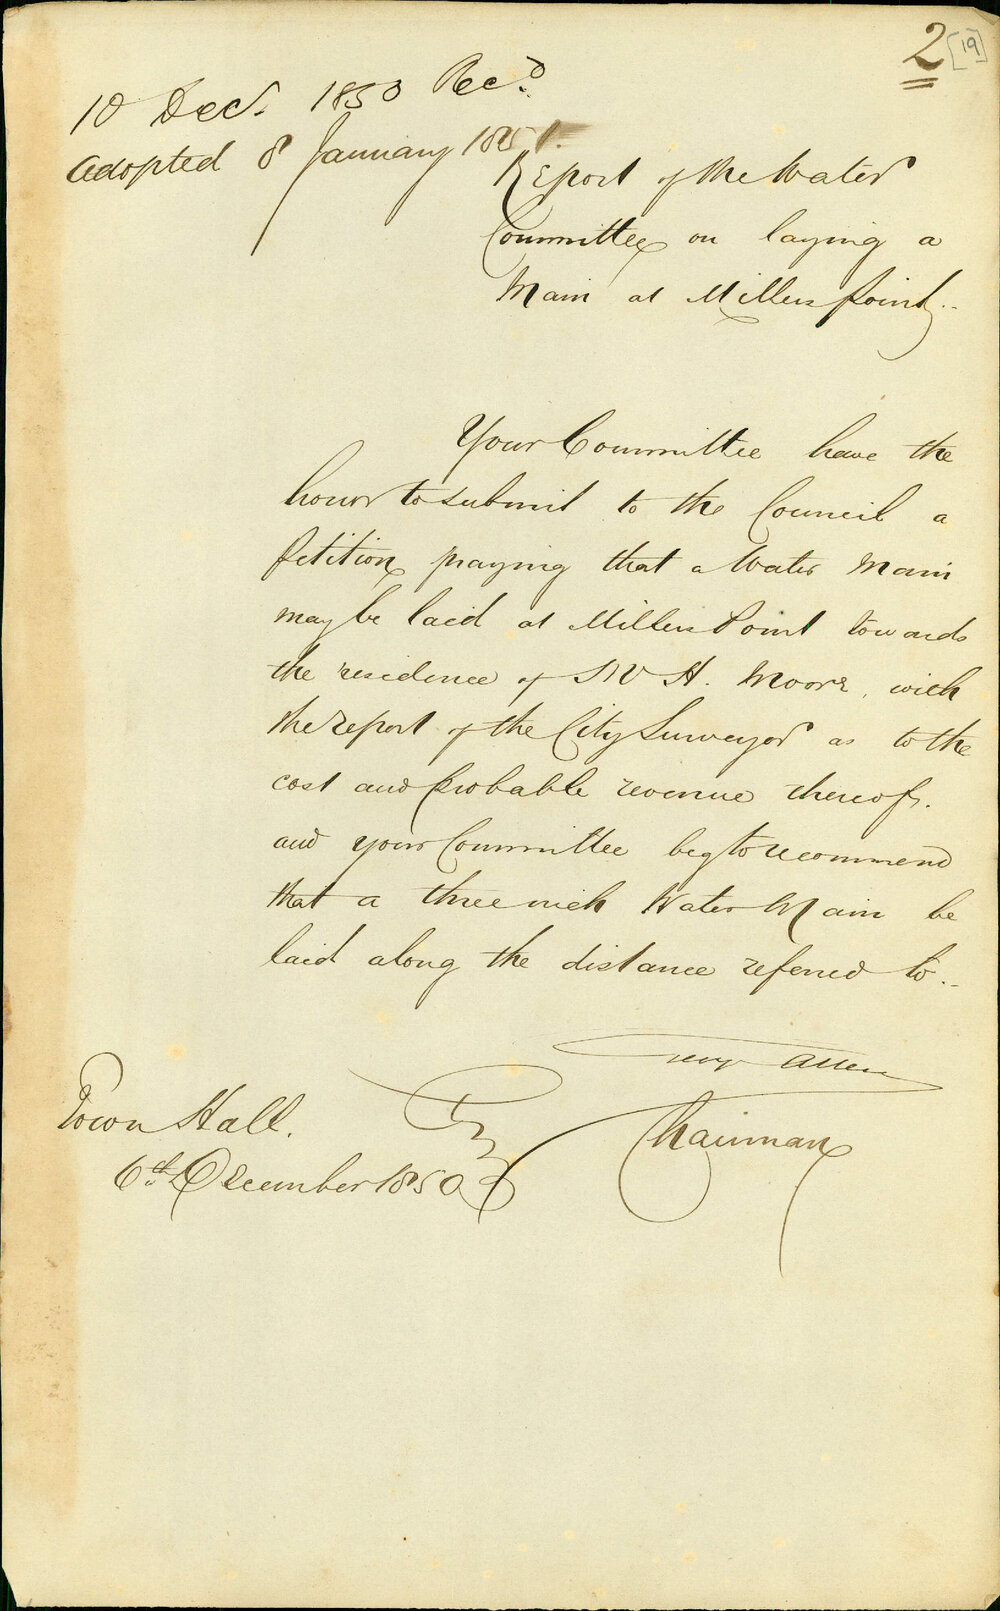 2 [19]
10 Dec. 1850 Recd.
Adopted 8 January 1851.
Report of the Water
Committee on laying a
Main at Millers Point.
Your Committee have the
honor to submit to the Council a
Petition praying that a Water Main
may be laid at Millers Point towards
the residence of W H. Moore, with
the report of the City Surveyor as to the
cost and probable revenue thereof.
and your Committee beg to recommend
that a three inch Water Main be
laid along the distance referred to.
Geo. Allen
Chairman
Town Hall.
6th December 1850